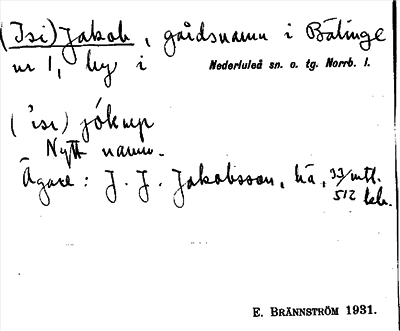 (Isi) Jakob, gårdsnamn i Bälinge
nr 1, by i Nederluleå sn. o. tg. Norrb. l.
('isi) jókup
Nytt namn.
Ägare: J. J. Jakobsson, hä, 33/512 mtl.
E. BRÄNNSTRÖM 1931.